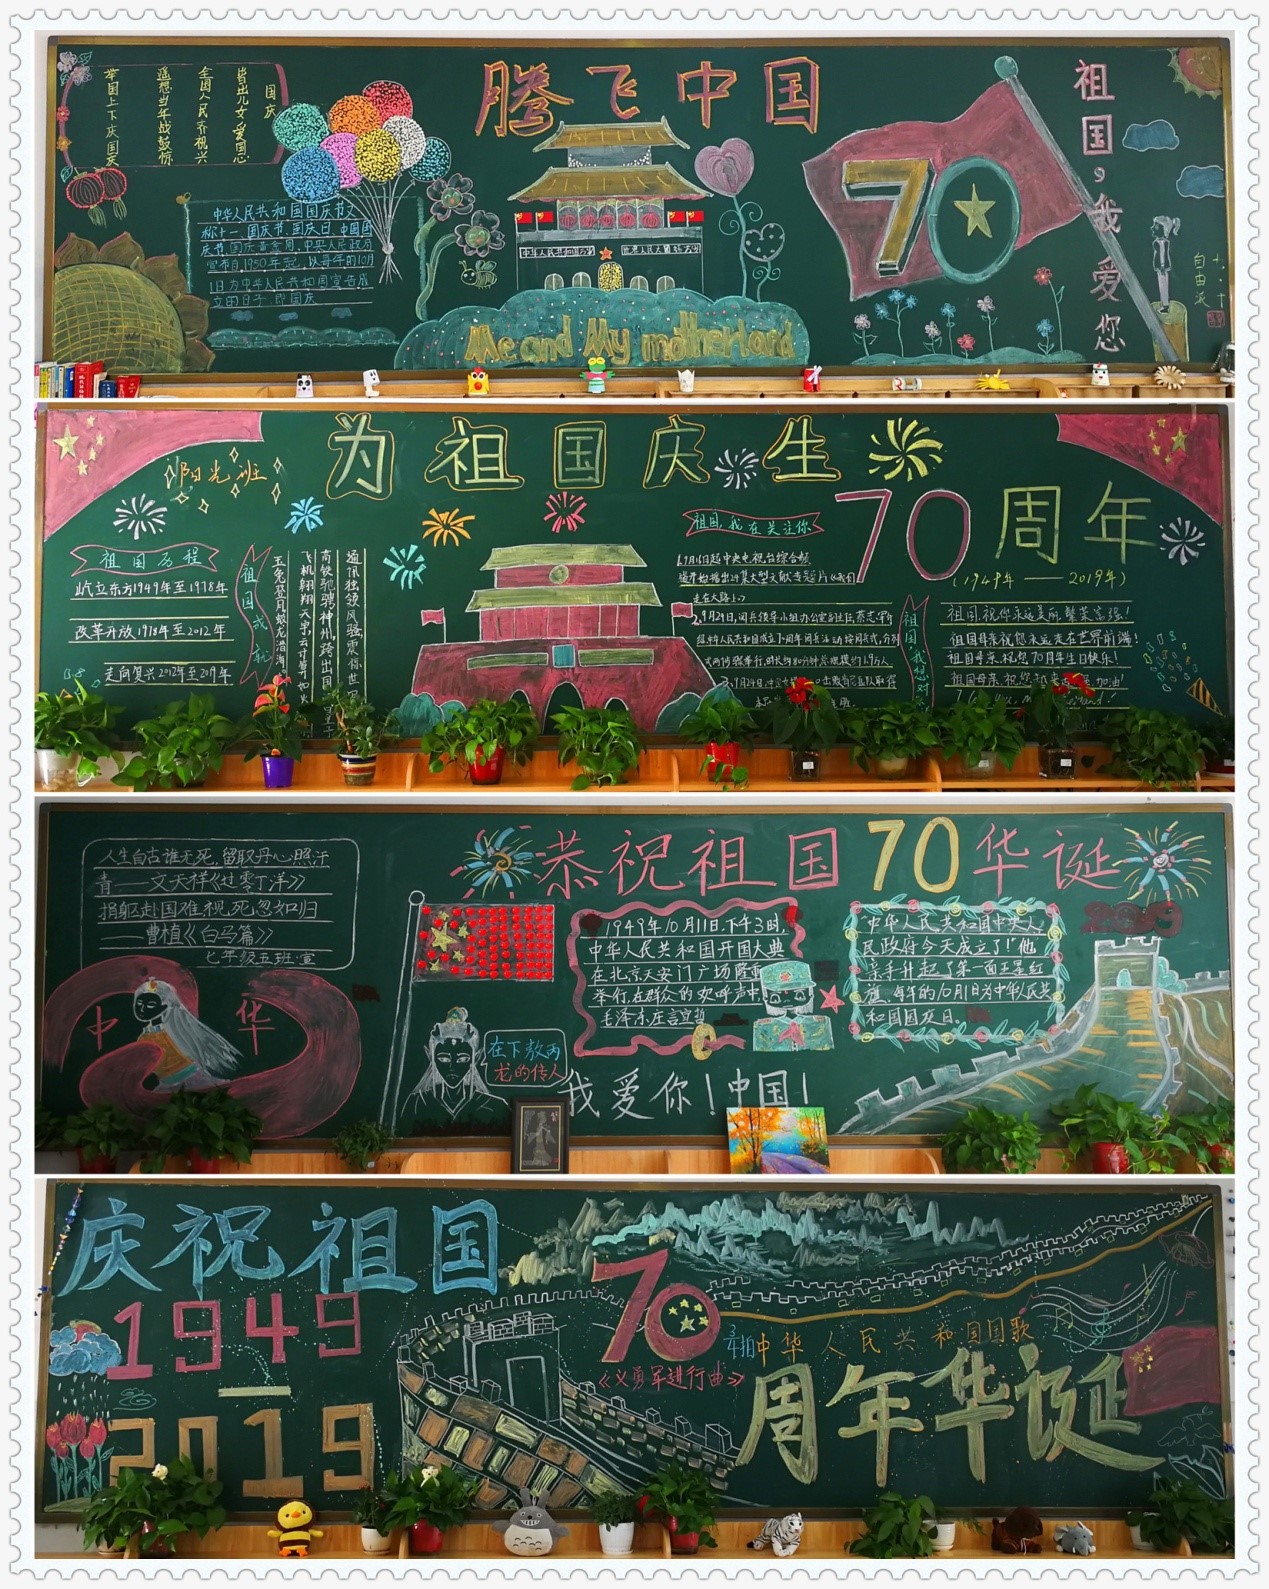 腾飞中国
国庆
皆出儿女爱国忠
全国人民齐祝兴
遥想当年战鼓惊
举国上下庆国庆
中华人民共和国国庆节又
称十一、国庆节、国庆日、中国国
庆节、国庆黄金周。中央人民政府
宣布自1950年起,以每年的10月
1日为中华人民共和国宣告成
立的日子,即国庆
中华人民共和国万岁
世界人民大团结万岁
Me and My motherland
70
祖国,我爱您
为祖国庆生
70周年
(1949年——2019年)
阳光班
祖国历程
屹立东方1949年至1978年
改革开放1978年至2012年
走向复兴2012年至2019年
祖国成就
玉兔登月蛟龙潜海
飞机翱翔天宇,云计算
高铁驰骋神州,跨出国
通讯独领风骚震惊世
祖国,我在关注你
1.9月16日起中央电视台综合频
道开始播出24集大型文献专题片《我们
走在大路上》
2.9月24日,阅兵领导小组办公室副主任,蔡志军介
绍,中华人民共和国成立70周年阅兵活动按阅兵式,分列
式两步骤举行,时长约80分钟,总规模约1.5万人。
祖国,我想对
祖国,祝你永远美丽,繁荣富强!
祖国母亲祝您永远走在世界前端!
祖国母亲,祝您70周年生日快乐!
恭祝祖国70华诞
人生自古谁无死,留取丹心照汗
青——文天祥《过零丁洋》
捐躯赴国难视死忽如归
——曹植《白马篇》
七年级五班·宣
中华
在下敖丙
龙的传人
1949年10月1日,下午3时,
中华人民共和国开国大典
在北京天安门广场隆重
举行,在群众的欢呼声中,
毛泽东庄言宣告
中华人民共和国中央人
民政府今天成立了!"他
亲手升起了第一面五星红
旗。每年的10月1日为中华人民共
和国国庆日。
2019
我爱你!中国!
庆祝祖国
1949
—
2019
70
周年华诞
中华人民共和国国歌
《义勇军进行曲》